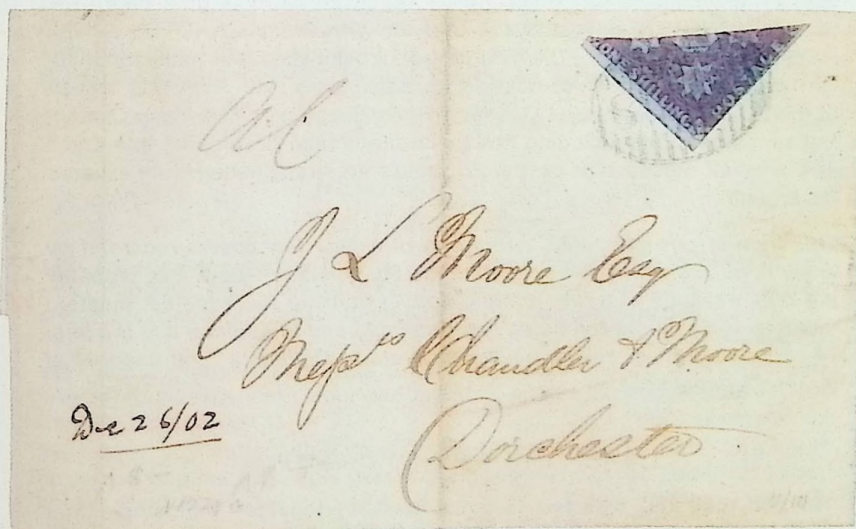 ONE SHILLING POSTAGE
J L Moore Esq
Messrs Chandler & Moore
Dorchester
Dec 26/02